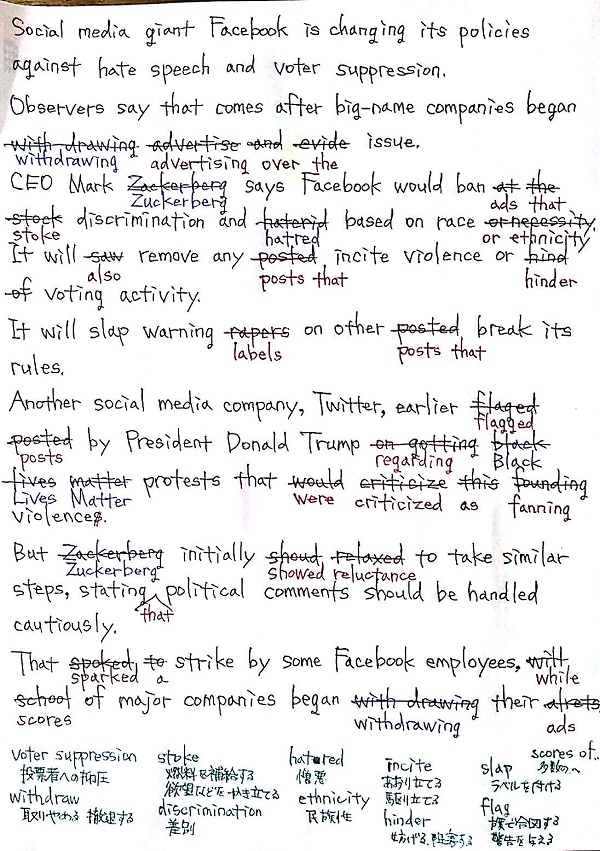 Social media giant Facebook is changing its policies
against hate speech and voter suppression.
Observers say that comes after big-name companies began
with drawing advertise and evide issue.
withdrawing advertising over the
CEO Mark Zackerberg says Facebook would ban at the
Zuckerberg ads that
stock discrimination and haterid based on race or necessity.
stoke hatred or ethnicity
It will saw remove any posted incite violence or hind
also posts that hinder
of voting activity.
It will slap warning rapers on other posted break its
labels posts that
rules.
Another social media company, Twitter, earlier flaged
flagged
posted by President Donald Trump on gotting black
posts regarding Black
lives matter protests that would criticize this founding
Lives Matter were criticized as fanning
violences.
But Zackerberg initially shoud relaxed to take similar
Zuckerberg showed reluctance
steps, stating political comments should be handled
that
cautiously.
That spoked to strike by some Facebook employees, will
sparked a while
school of major companies began with drawing their alrets
scores withdrawing ads
voter suppression stoke hatured incite slap scores of..
投票者への抑圧 燃料を補給する 憎悪 あおり立てる ラベルを付ける 多数の
withdraw 欲望などをかき立てる ethnicity 駆り立てる flag
取りやめる 撤退する discrimination 民族性 hinder 旗で合図する
差別 妨げる, 阻害する 警告を与える